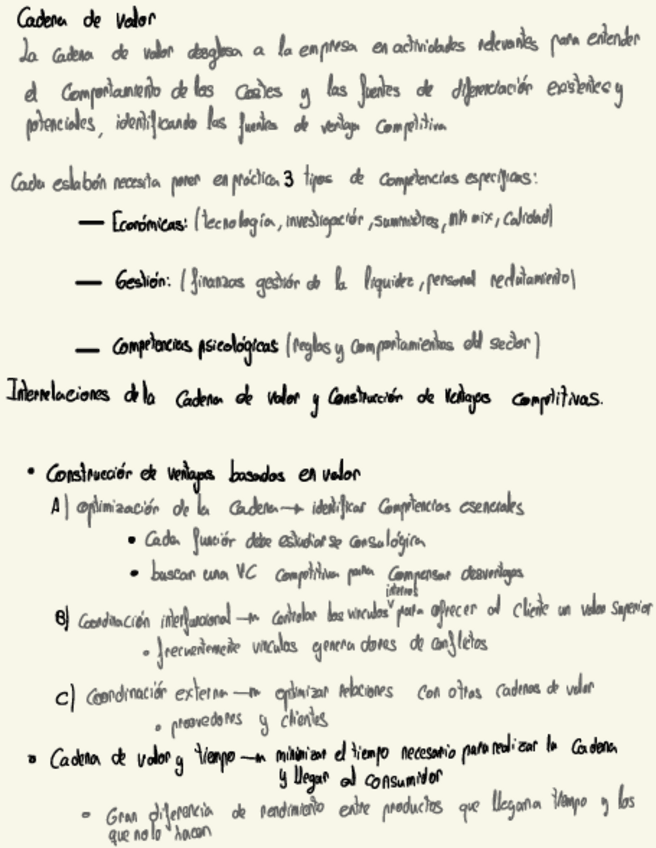 Cadena de valor
La cadena de valor desglosa a la empresa en actividades relevantes para entender
el comportamiento de los costes y las fuentes de diferenciación existentes y
potenciales, identificando las fuentes de ventaja competitiva
Cada eslabón necesita poner en práctica 3 tipos de competencias específicas:
— Económicas: (tecnología, investigación, suministros, mk mix, calidad)
— Gestión: (finanzas gestión de la liquidez, personal reclutamiento)
— Competencias psicológicas (reglas y comportamientos del sector)
Interrelaciones de la cadena de valor y Construcción de Ventajas competitivas.
• Construcción de ventajas basadas en valor
A) optimización de la cadena → identificar competencias esenciales
• Cada función debe estudiarse con su lógica
• buscar una VC competitiva para compensar desventajas
internos
B) Coordinación interfuncional → controlar los vínculos para ofrecer al cliente un valor superior
• frecuentemente vínculos generadores de conflictos
C) Coordinación externa → optimizar relaciones con otras cadenas de valor
• proveedores y clientes
• Cadena de valor y tiempo → minimizar el tiempo necesario para realizar la cadena
y llegar al consumidor
• Gran diferencia de rendimiento entre productos que llegan a tiempo y los
que no lo hacen